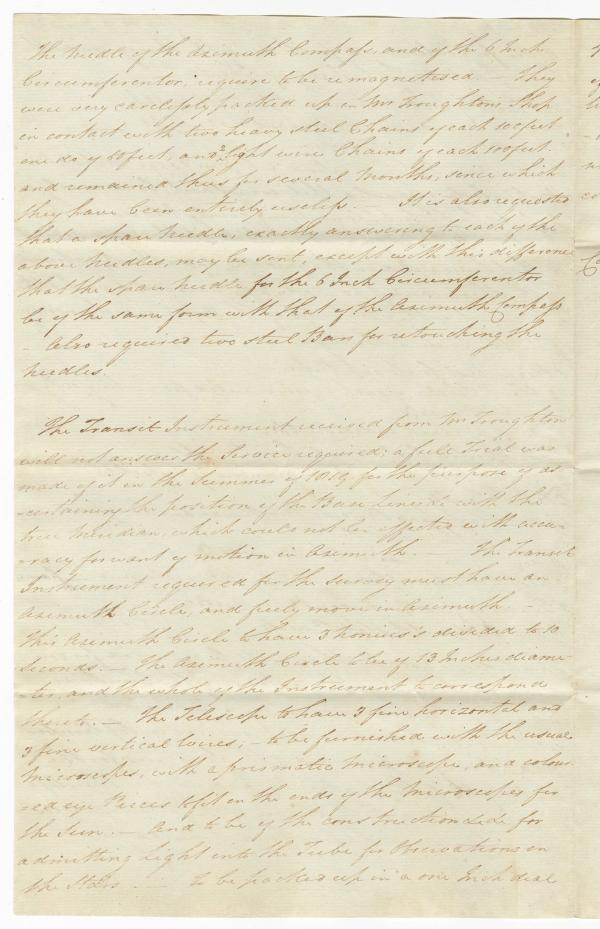 The Needle of the Azimuth Compass, and of the 6 Inch
Circumferentor, require to be remagnetised. — They
were very carelessly packed up in Mr Troughton's Shop
in contact with two heavy steel Chains of each 100 feet
one do of 50 feet, and 2 light wire Chains of each 100 feet.
and remained thus for several Months, sence which
they have been entirely useless. It is also requested
that a spare needle, exactly answering to each of the
above needles, may be sent, except with this difference
that the spare needle for the 6 Inch Circumferentor
be of the same form with that of the Azimuth Compass
- Also required two steel Bars for retouching the
needles.
The Transit Instrument received from Mr Troughton
will not answer the Service required; a full Trial was
made of it in the Summer of 1819 for the purpose of as
-certaining the position of the Base Line with the
true Meridian, which could not be effected with accu-
-racy for want of motion in Azimuth. The Transit
Instrument required for the survey must have an
Azimuth Circle, and freely move in Azimuth. -
This Azimuth Circle to have 3 Nonius's divided to 10
Seconds. — The Azimuth Circle to be of 13 Inches diame-
-ter, and the whole of the Instrument to correspond
thereto. — The Telescope to have 3 fine horizontal and
3 fine vertical wires, - to be furnished with the usual
Microscopes, with a prismatic Microscope, and colour-
-ed eye Pieces to fit on the ends of the Microscopes for
the Sun. — And to be of the construction for
admitting Light into the Tube for Observations on
the Stars. — To be packed up in a one Inch deal